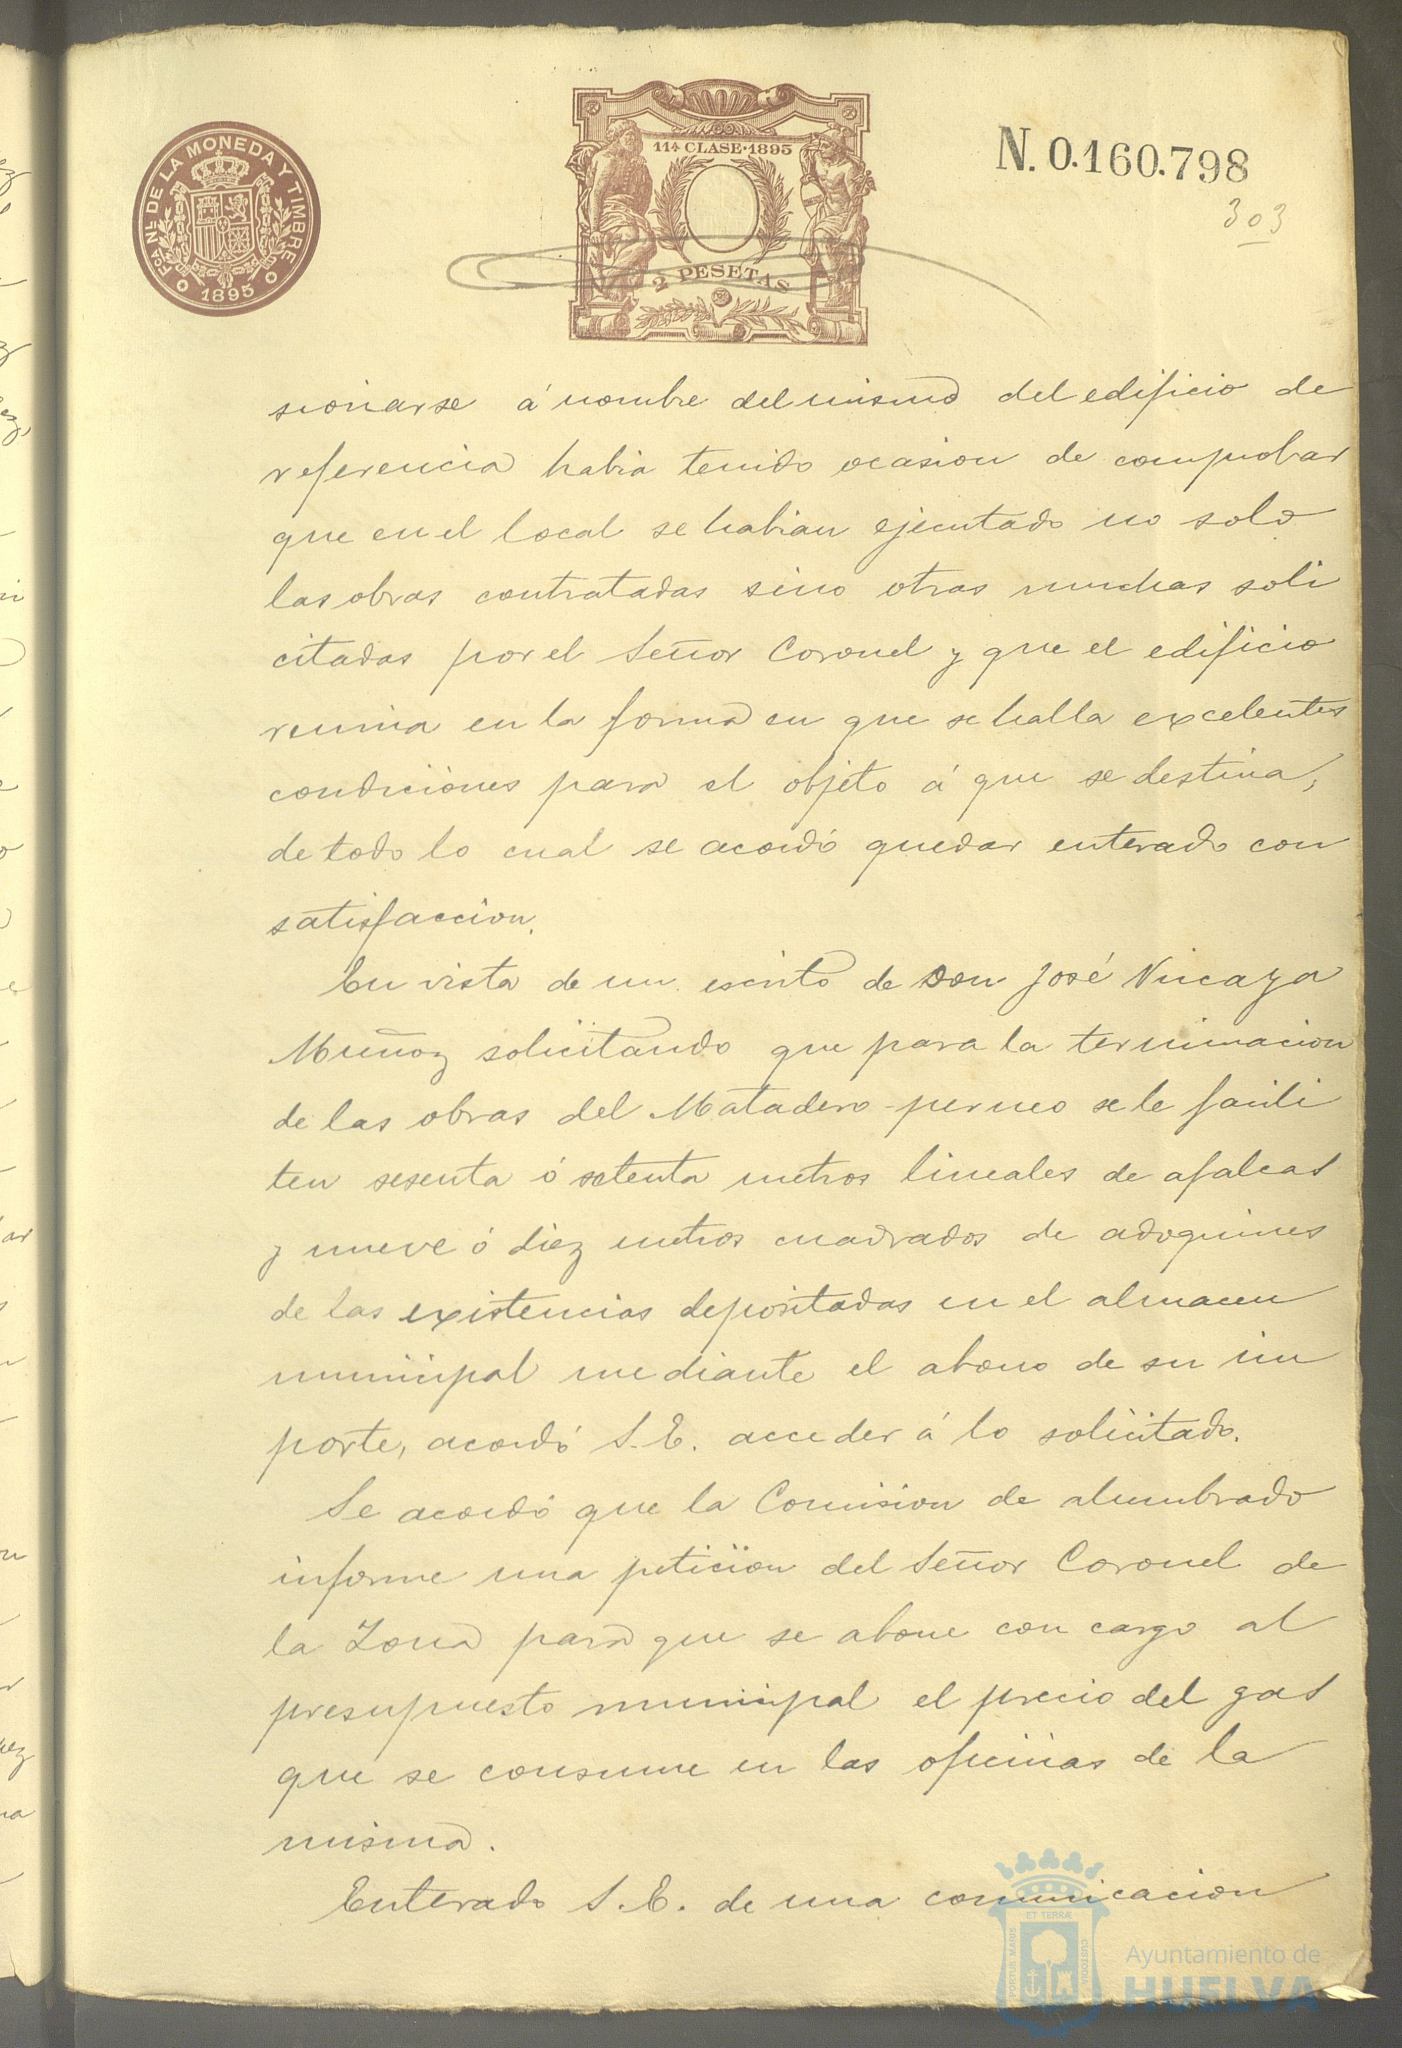 FCA. NL. DE LA MONEDA Y TIMBRE
1895
11ª CLASE·1895
2 PESETAS
N. 0.160.798
303
sionarse á nombre del mismo del edificio de
referencia habia tenido ocasion de comprobar
que en el local se habian ejecutado no solo
las obras contratadas sino otras muchas soli
citadas por el Señor Coronel y que el edificio
reunia en la forma en que se halla excelentes
condiciones para el objeto á que se destina,
de todo lo cual se acordó quedar enterado con
satisfaccion.
En vista de un escrito de Don José Vizcaya
Muñoz solicitando que para la terminacion
de las obras del Matadero perneo se le facili
ten sesenta ó setenta metros lineales de
y nueve ó diez metros cuadrados de adoquines
de las existencias depositadas en el almacen
municipal mediante el abono de su im
porte, acordó S.E. acceder á lo solicitado.
Se acordó que la Comision de alumbrado
informe una peticion del Señor Coronel de
la Zona para que se abone con cargo al
presupuesto municipal el precio del gas
que se consume en las oficinas de la
misma.
Enterado S.E. de una comunicacion
PORTUS MARIS ET TERRÆ CUSTODIA
Ayuntamiento de
HUELVA